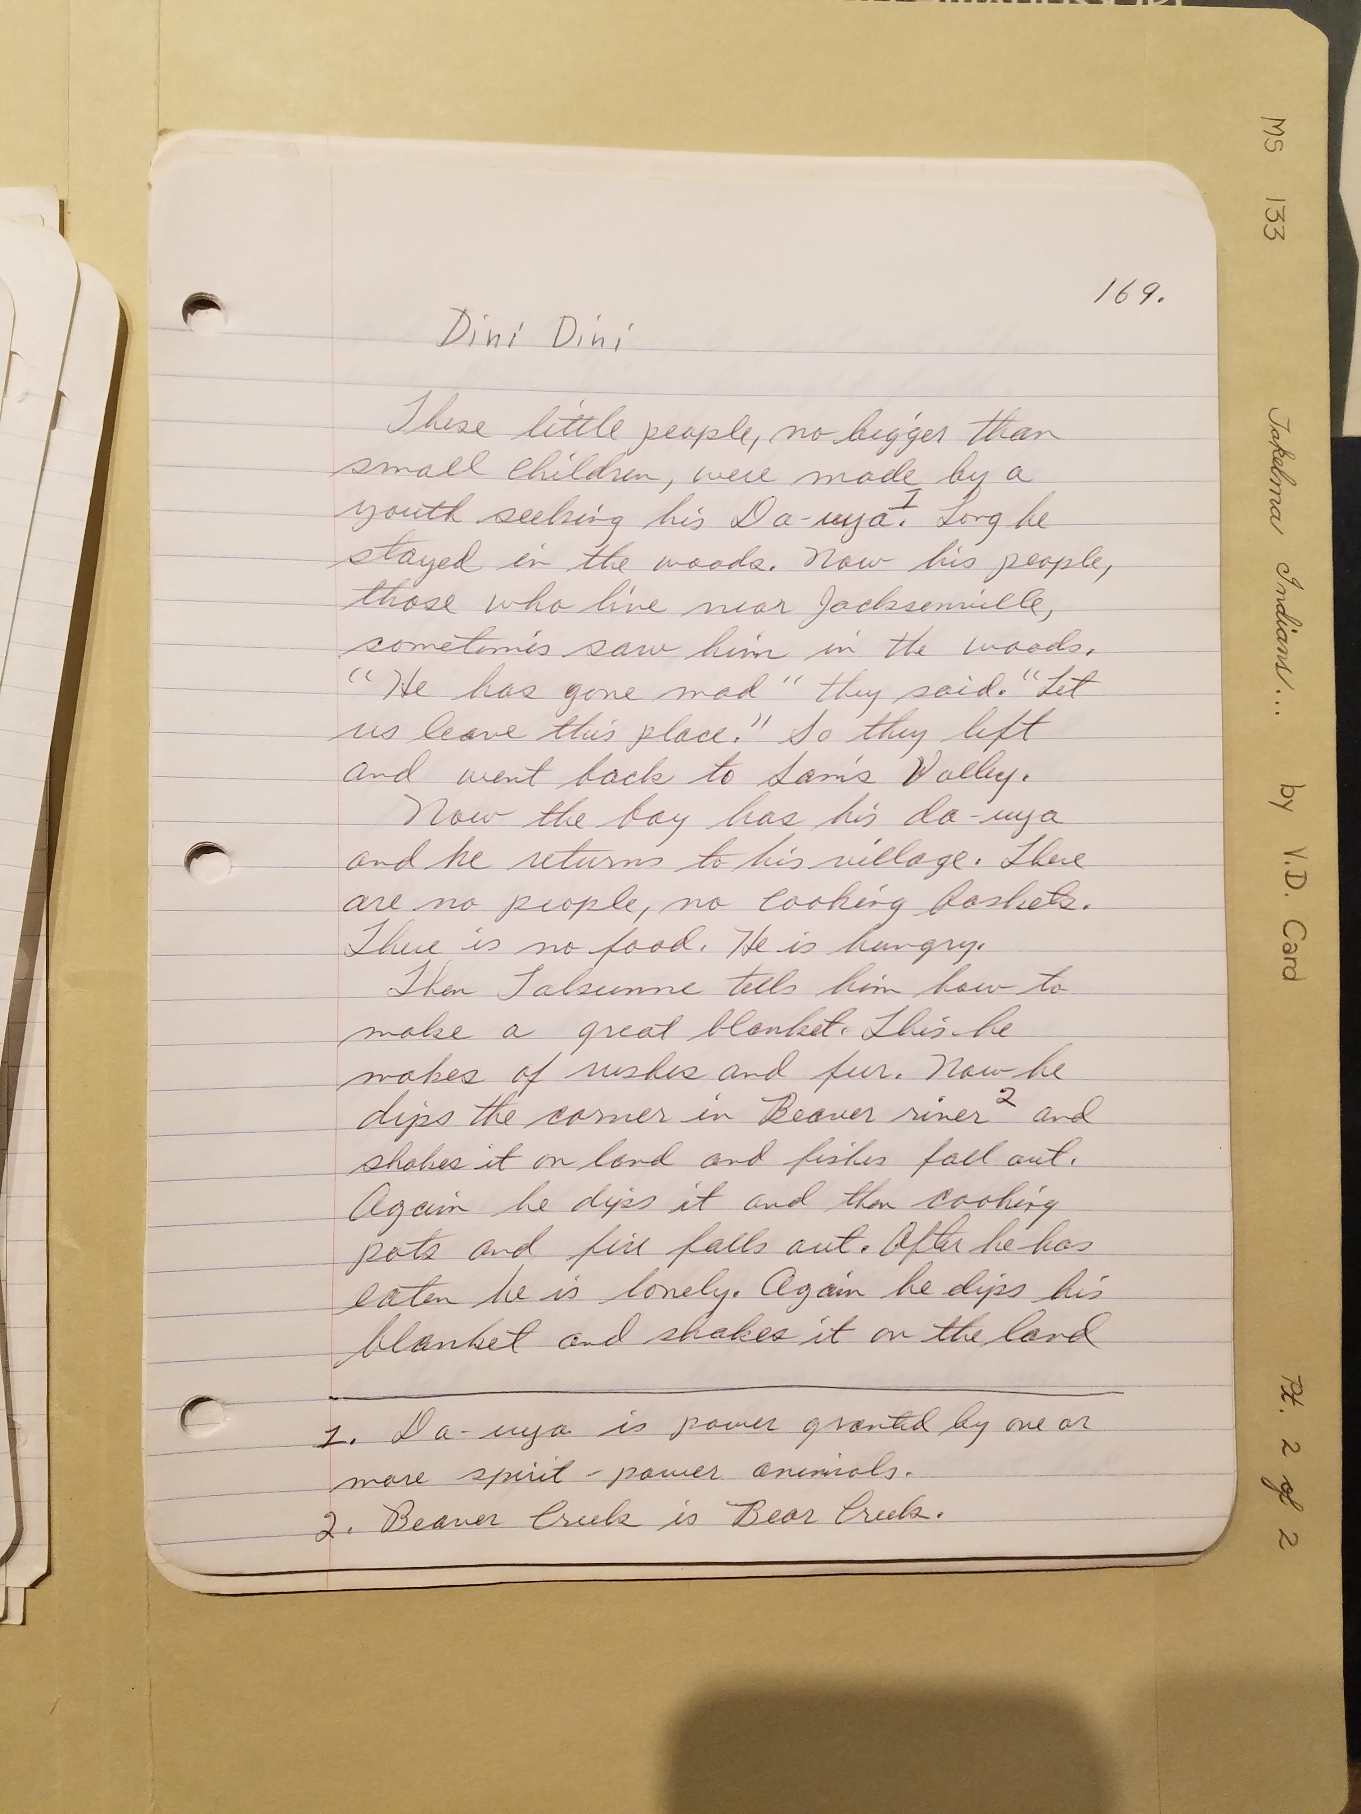 169.
Dini Dini
These little people, no bigger than
small children, were made by a
youth seeking his Da-uya.¹ Long he
stayed in the woods. Now his people,
those who live near Jacksonville,
sometimes saw him in the woods.
"He has gone mad" they said. "Let
us leave this place." So they left
and went back to Sam's Valley.
Now the boy has his da-uya
and he returns to his village. There
are no people, no cooking baskets.
There is no food. He is hungry.
Then Talsunne tells him how to
make a great blanket. This he
makes of rushes and fur. Now he
dips the corner in Beaver river² and
shakes it on land and fishes fall out.
Again he dips it and then cooking
pots and fire falls out. After he has
eaten he is lonely. Again he dips his
blanket and shakes it on the land
1. Da-uya is power granted by one or
more spirit-power animals.
2. Beaver Creek is Bear Creek.
MS 133 Takelma Indians... by V.D. Card Pt. 2 of 2